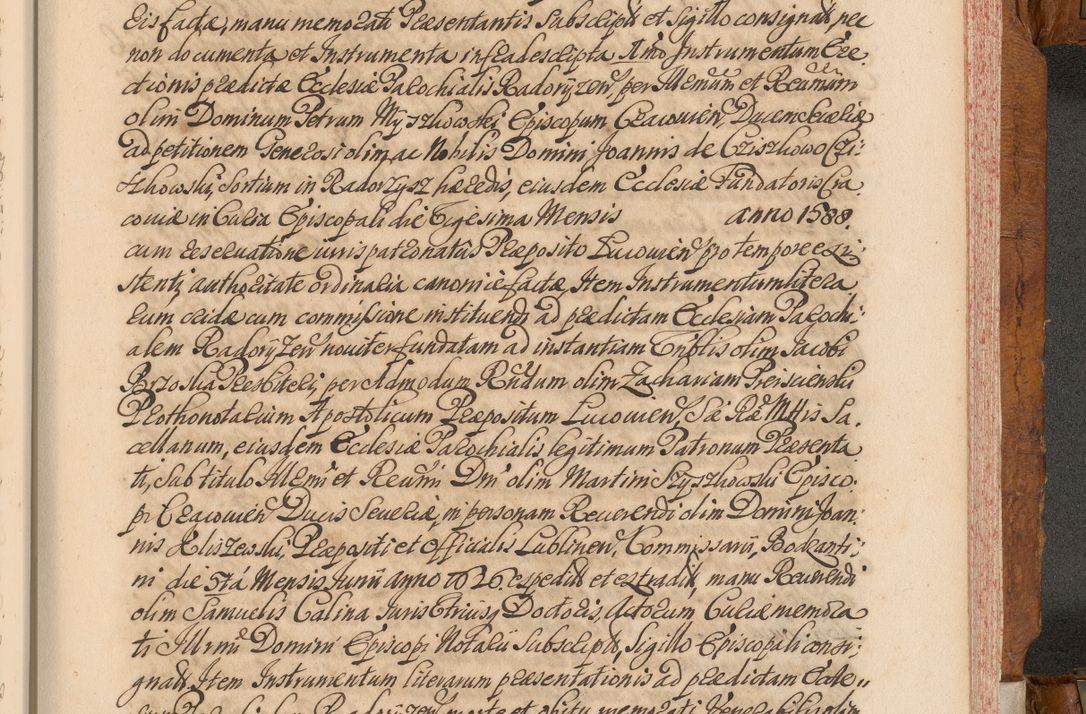 eis factæ, manu memorati Præsentantis Subscript et Sigillo consignat nec
non documenta et Instrumenta infrascripta Imo Instrumentum Ere
ctionis prædictæ Ecclesiæ Parochialis Radoryzen per Illrmum et Reumum
olim Dominum Petrum Myszkowski Episcopum Cracovien Ducem Severiæ
ad petitionem Generosi olim ac Nobilis Domini Joannis de Cziszkowo Czi:
szkowski, Sortium in Radorzysz hæredis, eiusdem Ecclesiæ Fundatoris Cra
coviæ in Curia Episcopali die Trigesima Mensis anno 1588.
cum reservatione iuris patronatûs Præposito Lucovien pro tempore exi
stenti, authoritate ordinaria canonicè factæ, Item Instrumentum litera
rum cridæ cum commissione instituendi ad prædictam Ecclesiam Parochi:
alem Radorÿzen noviter fundatam ad instantiam Hrblis olim Jacobi
Brzoska Presbiteri, per Admodum Rndum olim Zachariam
Prothonotarium Apostolicum Præpositum Lucovien, Sæ Ræ Mttis Sa
cellanum, eiusdem Ecclesiæ Parochialis legitimum Patronum Præsenta
ti, sub titulo Illrmi et Reumi Dni olim Martini Szyszkowski Episco:
pi Cracovien Ducis Severiæ, in personam Reverendi olim Domini Joan:
nis Præpositi et Officialis Lublinen, Commissarii, Bodzanti:
ni die 5tá Mensis Junii anno 1626 expedit et extradit, manu Reverendi
olim Samuelis Calina Juris Utriusq Doctoris, Actorum Curiæ memora
ti Illrmi Domini Episcopi Notarii Subscript, Sigillo Episcopali consi:
gnat. Item Instrumentum literarum præsentationis ad prædictam Eccle„
Radorÿzen morte et obitu memorati Venerabilis olim